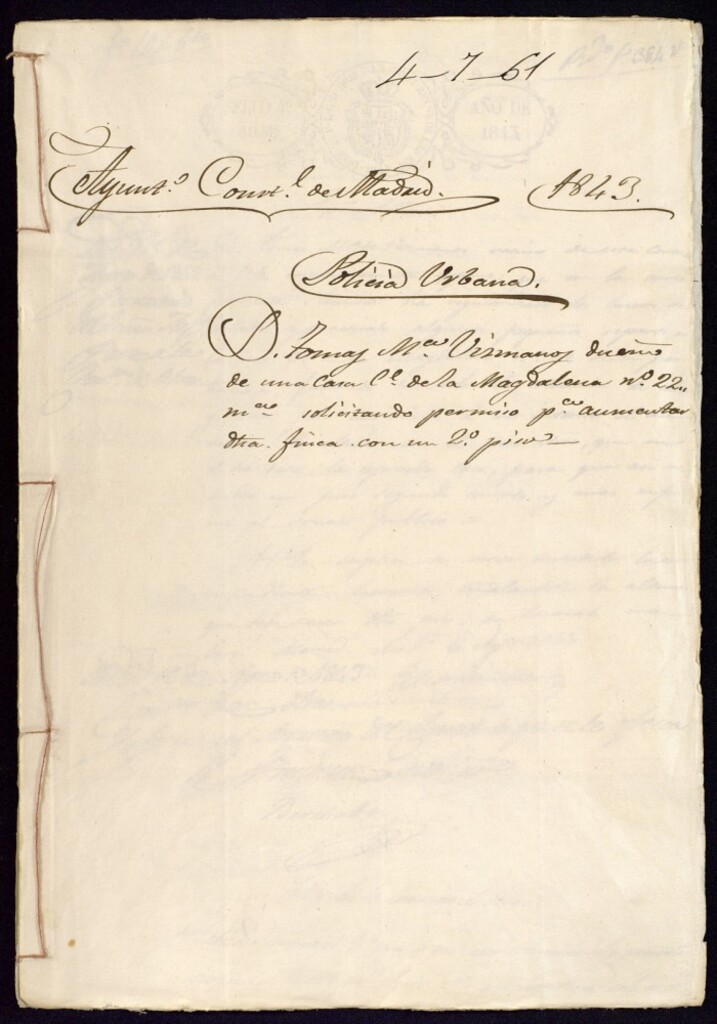 4-7-61
Ayunt.º Const.l de Madrid. 1843.
Policia Urbana.
D. Tomas M.a Vizmanos dueño
de una Casa C.e de la Magdalena nº. 22
m.na solicitando permiso p.a aumentar
dha. finca con un 2.º piso